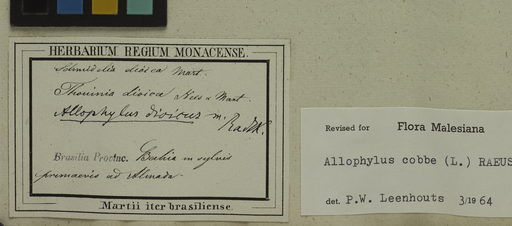 HERBARIUM REGIUM MONACENSE.
Schmidelia dioica Mart.
Thouinia dioica Nees & Mart.
Allophylus dioicus m. Radlk.
Brasilia Provinc. Bahia in sylvis
primaevis ad Almada
Martii iter brasiliense.
Revised for Flora Malesiana
Allophylus cobbe (L.) RAEUS
det. P.W. Leenhouts 3/1964